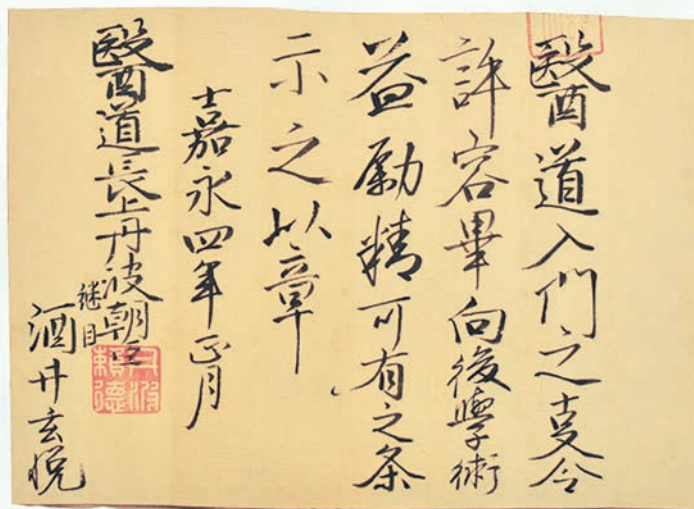 醫道入門之叓令
許容畢向後學術
益勵精可有之条
示之以章
嘉永四年正月
醫道長上丹波朝臣
丹波
頼德
継目
酒井玄悦